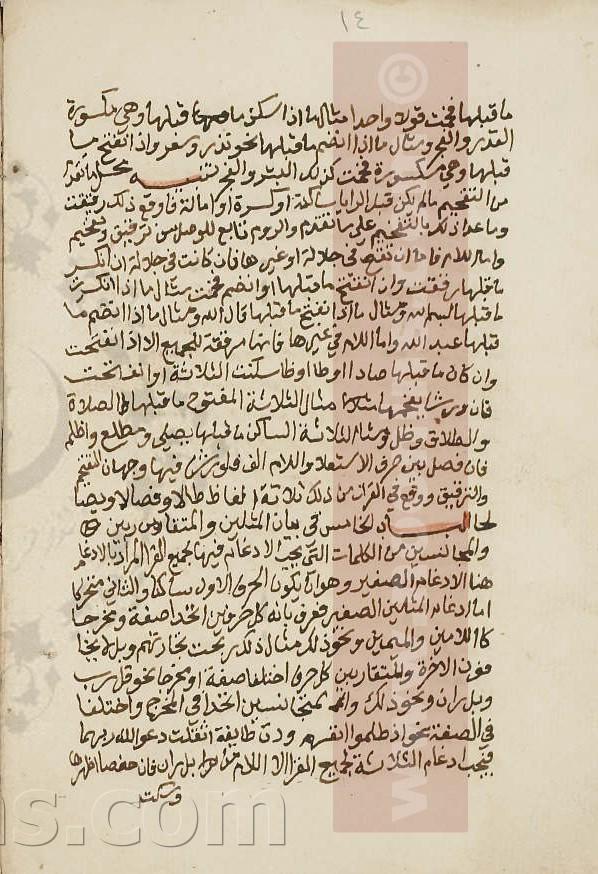 ١٤
ما قبلها فخمت قولا واحدا مثال ما اذا سكن ما قبلها وهي مكسورة
القدر والفجر ومثال ما اذا انضم ما قبلها نحو نذر وسعر واذا انفتح ما
قبلها وهي مكسورة فخمت كذلك البشر والفجر تنبيه محل ما تقدم
من التفخيم ما لم يكن قبل الرا يا ساكنة او كسرة او امالة فا وقع ذلك رققت
وما عدا ذلك بالتفخيم على ما تقدم والروم تابع للوصل من ترقيق وتفخيم
واما اللام فاما ان تقع في جلالة او غيرها فان كانت في جلالة ان انكسر
ما قبلها رققت وان انفتح ما قبلها او انضم فخمت مثال ما اذا انكسرت
ما قبلها بسم الله ومثال ما اذا انفتح ما قبلها قال الله ومثال ما اذا انضم ما
قبلها عبد الله واما اللام في غيرها فانها مرققة للجميع الا اذا انفتحت
وان كان ما قبلها صادا او طا او ظا سكنت الثلاثة او انفتحت
فان ورشا يفخمها مثال الثلاثة المفتوح ما قبلها الصلاة
والطلاق وظل ومثال الثلاثة الساكن ما قبلها يصلى ومطلع واظلم
فان فصل بين حرف الاستعلا واللام الف فلورش فيها وجهان التفخيم
والترقيق ووقع في القران من ذلك ثلاثة الفاظ طال وفصالا ويصا
لحا الباب الخامس في بيان المثلين والمتقاربين
والمجانسين من الكلمات التي يجب الادغام فيها لجميع القرا المراد بالادغام
هنا الادغام الصغير وهو ان يكون الحرف الاول ساكنا والثاني متحركا
اما ادغام المثلين الصغير فعرف بانه كل حرفين اتحدا صفة ومخرجا
كاللامين والميمين ونحو ذلك مثال ذلك ربحت تجارتهم وبل لا يخا
فون الاخرة والمتقاربين كل حرف اختلفا صفة او مخرجا نحو قل رب
وبل ران ونحو ذلك والمتجانسين اتحدا في المخرج واختلفا
في الصفة نحو اذ ظلموا انفسهم ودت طايفة اثقلت دعوا الله ربهما
فيجب ادغام الثلاثة لجميع القرا الا اللام من بل ران فان حفصا اظهرها
وسكت